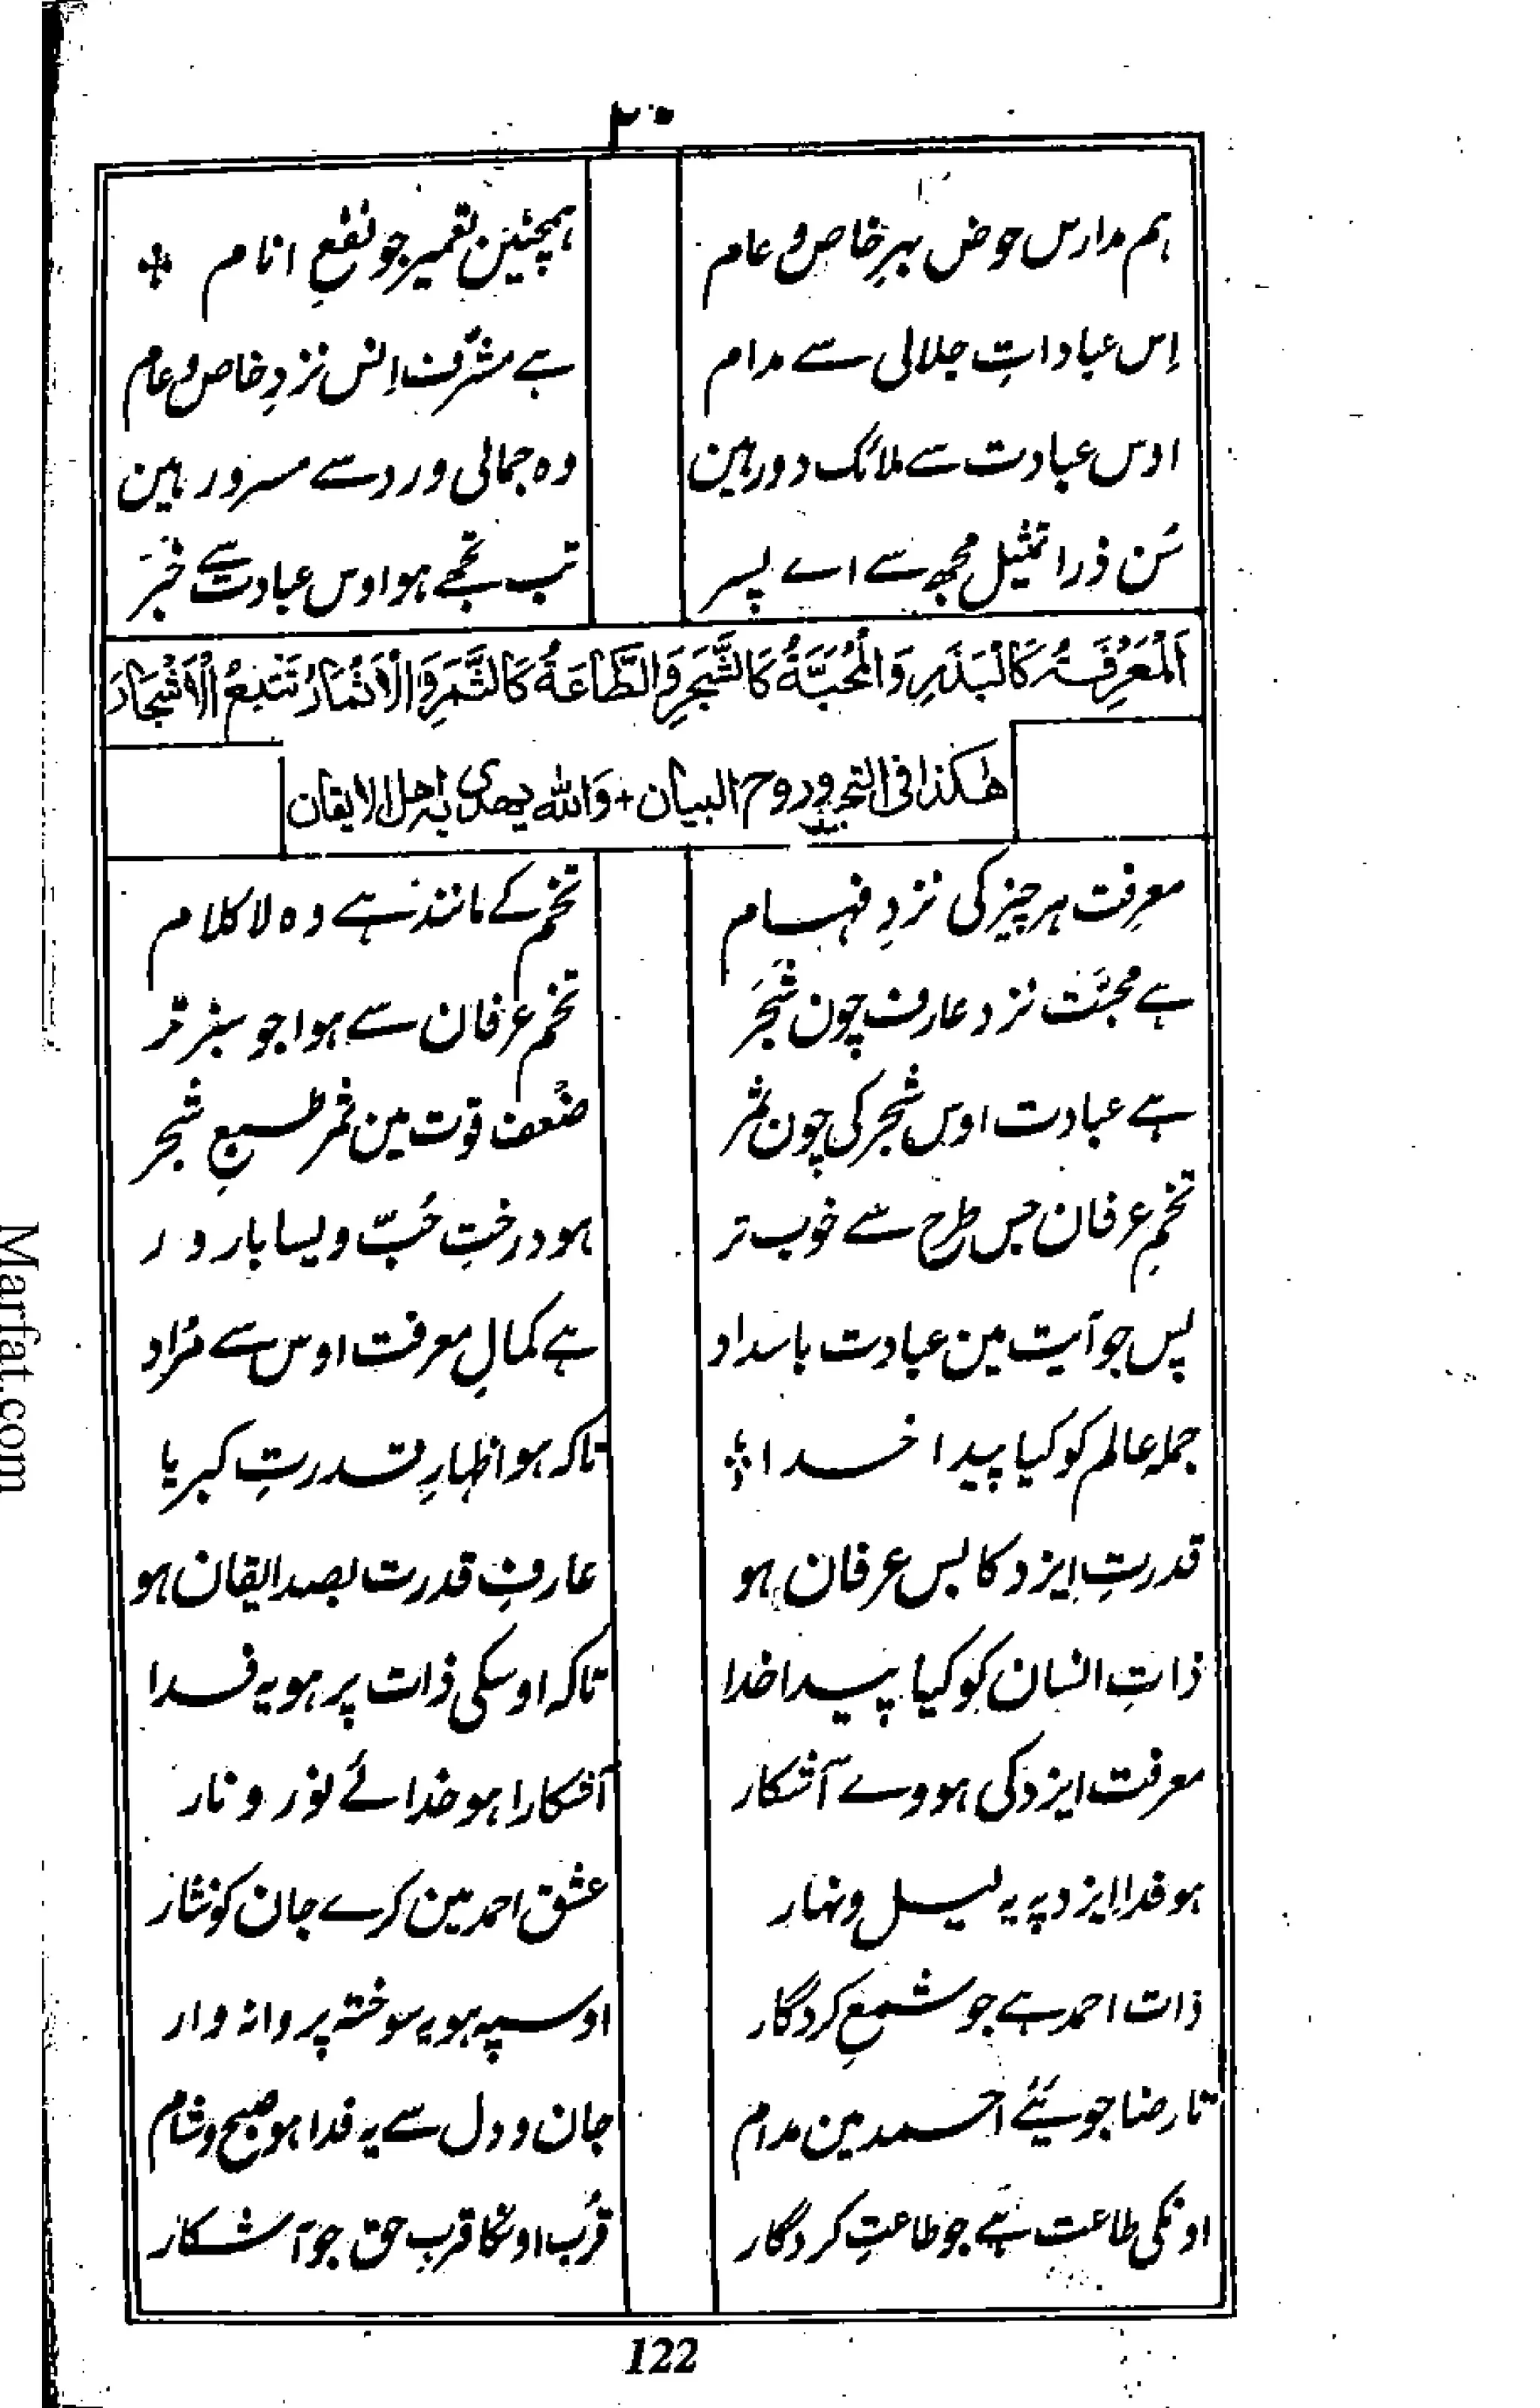 ۲۰
ہم مدارس حوض بہرِ خاص و عام ہمچنین تعمیر جو نفعِ انام
اِس عباداتِ جلالی سے مدام ہے مشرّف اِنس نزدِ خاص و عام
اوس عبادت سے ملائک دور ہین وہ جمالی ورد سے مسرور ہین
سُن ذرا تمثیل مجھ سے اے پسر تب تجھے ہو اوس عبادت سے خبَر
اَلْمَعْرِفَۃُ کَالْبَذْرِ وَالْمُحَبَّۃُ کَالشَّجَرِ وَالطَّاعَۃُ کَالثَّمَرِ وَالْاَثْمَارُ تَتْبَعُ الْاَشْجَارَ
ھٰکذا فی التجبیر وروح البیان + وَاللہ یھدی بہٖ اھل الایقان
معرفت ہر چیز کی نزدِ فہام تخم کے مانند ہے وہ لا کلام
ہے محبّت نزد عارف چون شجَر تخمِ عرفان سے ہوا جو سبز تر
ہے عبادت اوس شجر کی چون ثمر ضُعف قوت مین ثمر طبعِ شجر
تخمِ عرفان جس طرح سے خوب تر ہو درختِ حُبّ ویسا بارور
پس جو آیت مین عبادت باسداد ہے کمالِ معرفت اوس سے مُراد
جملہ عالم کو کیا پیدا خدا تاکہ ہو اظہارِ قدرتِ کبریا
قدرتِ ایزد کا بس عرفان ہو عارفِ قدرت بصد ایقان ہو
ذاتِ انسان کو کیا پیدا خدا تاکہ اوسکی ذات پر ہو یہ فدا
معرفت ایزد کی ہووے آشکار آشکارا ہو خدائے نور و نار
ہو فدا ایزد پہ یہ لیل و نہار عشق احمد مین کرے جان کو نثار
ذات احمد ہے جو شمعِ کردگار اوسپہ ہو یہ سوختہ پروانہ وار
تا رضا جوئیے احمد مین مدام جان و دل سے یہ فدا ہو صبح و شام
اونکی طاعت ہے جو طاعتِ کردگار قُرب اونکا قربِ حق جو آشکار
122
Marfat.com